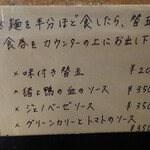 麺を半分ほど食したら、替玉
食券をカウンターの上にお出し下
× 味付き替玉 ¥20
× 猪と鴨の血のソース ¥350
× ジェノベーゼソース ¥350
× グリーンカリーとトマトのソース ¥35